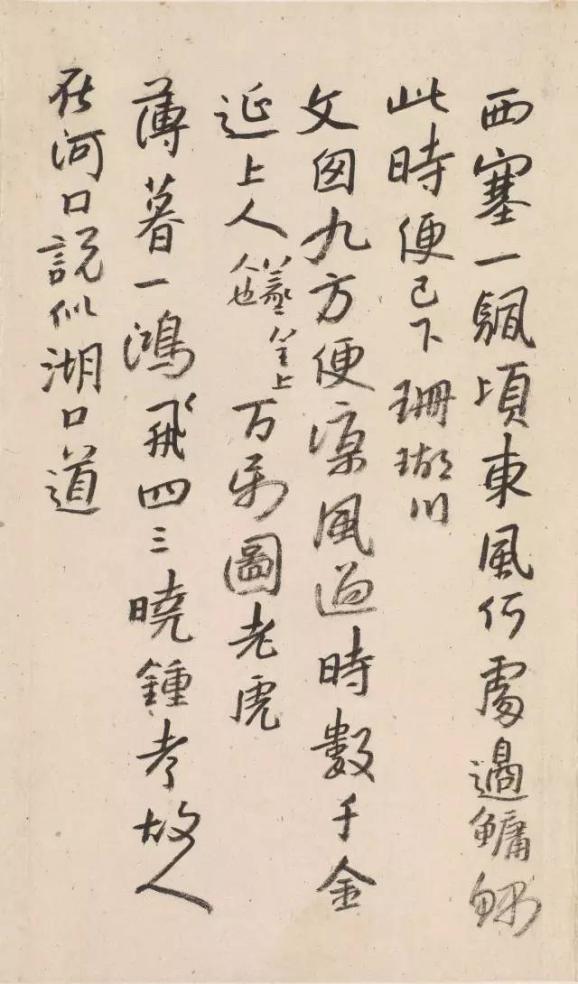 西塞一颿頃東風何處邊鱅
此時便已下珊瑚川
文囱九方便凉風過時數千金
延上人人也上万家圖老虎
薄暮一鴻飛四三曉鍾考故人
在河口説似湖口道